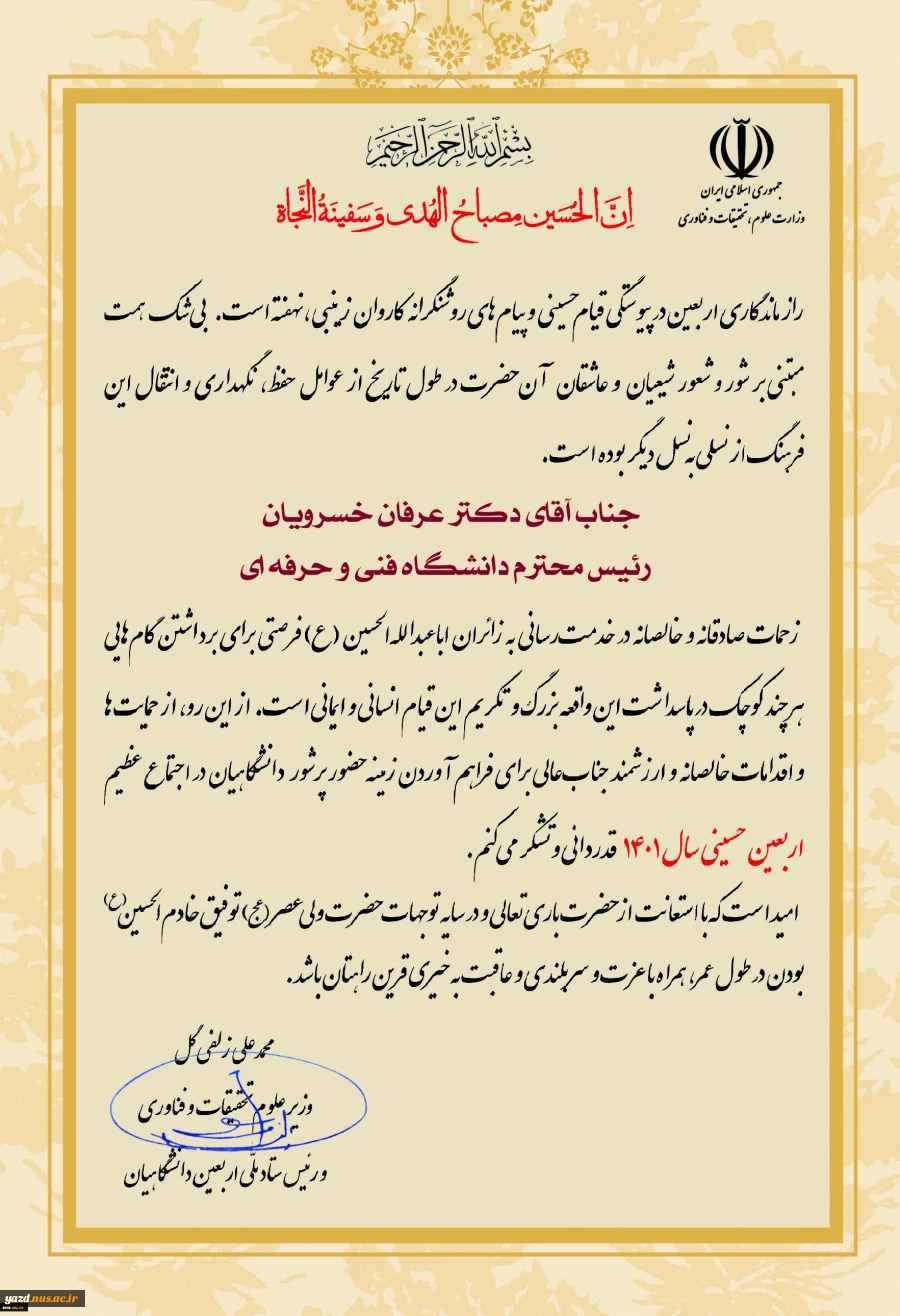 بسم الله الرحمن الرحیم
جمهوری اسلامی ایران
وزارت علوم، تحقیقات و فناوری
اِنَّ الحُسَین مِصباحُ الهُدی وَ سَفینَةُ النَّجاة
راز ماندگاری اربعین در پیوستگی قیام حسینی و پیام های روشنگرانه کاروان زینبی، نهفته است. بی شک همت
مبتنی بر شور و شعور شیعیان و عاشقان آن حضرت در طول تاریخ از عوامل حفظ، نگهداری و انتقال این
فرهنگ از نسلی به نسل دیگر بوده است.
جناب آقای دکتر عرفان خسرویان
رئیس محترم دانشگاه فنی و حرفه ای
زحمات صادقانه و خالصانه در خدمت رسانی به زائران اباعبدالله الحسین (ع) فرصتی برای برداشتن گام هایی
هر چند کوچک در پاسداشت این واقعه بزرگ و تکریم این قیام انسانی و ایمانی است. از این رو، از حمایت ها
و اقدامات خالصانه و ارزشمند جناب عالی برای فراهم آوردن زمینه حضور پرشور دانشگاهیان در اجتماع عظیم
اربعین حسینی سال ۱۴۰۱ قدردانی و تشکر می کنم.
امید است که با استعانت از حضرت باری تعالی و در سایه توجهات حضرت ولی عصر(عج) توفیق خادم الحسین(ع)
بودن در طول عمر، همراه با عزت و سربلندی و عاقبت به خیری قرین راهتان باشد.
محمد علی زلفی گل
وزیر علوم تحقیقات و فناوری
و رئیس ستاد ملّی اربعین دانشگاهیان
yazd.nus.ac.ir